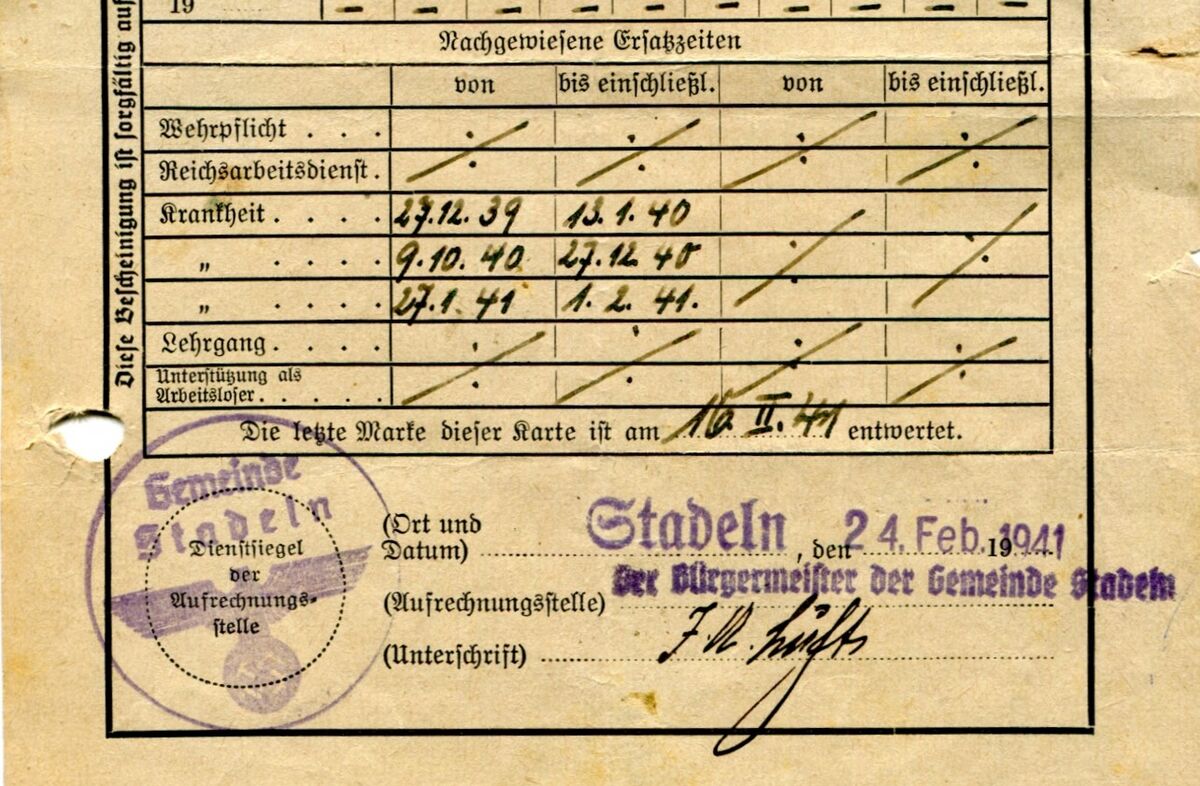 19 — — — — — — — — —
Nachgewiesene Ersatzzeiten
von bis einschließl. von bis einschließl.
Wehrpflicht . . .
Reichsarbeitsdienst .
Krankheit . . . . 27.12.39 13.1.40
„ . . . . 9.10.40 27.12.40
„ . . . . 27.1.41 1.2.41.
Lehrgang . . . .
Unterstützung als
Arbeitsloser . . . . .
Die letzte Marke dieser Karte ist am 16.II.41 entwertet.
Diese Bescheinigung ist sorgfältig auf
Gemeinde
Stadeln
Dienstsiegel
der
Aufrechnungs-
stelle
(Ort und
Datum) Stadeln, den 24. Feb. 1941 19
Der Bürgermeister der Gemeinde Stadeln
(Aufrechnungsstelle)
(Unterschrift) J.A.